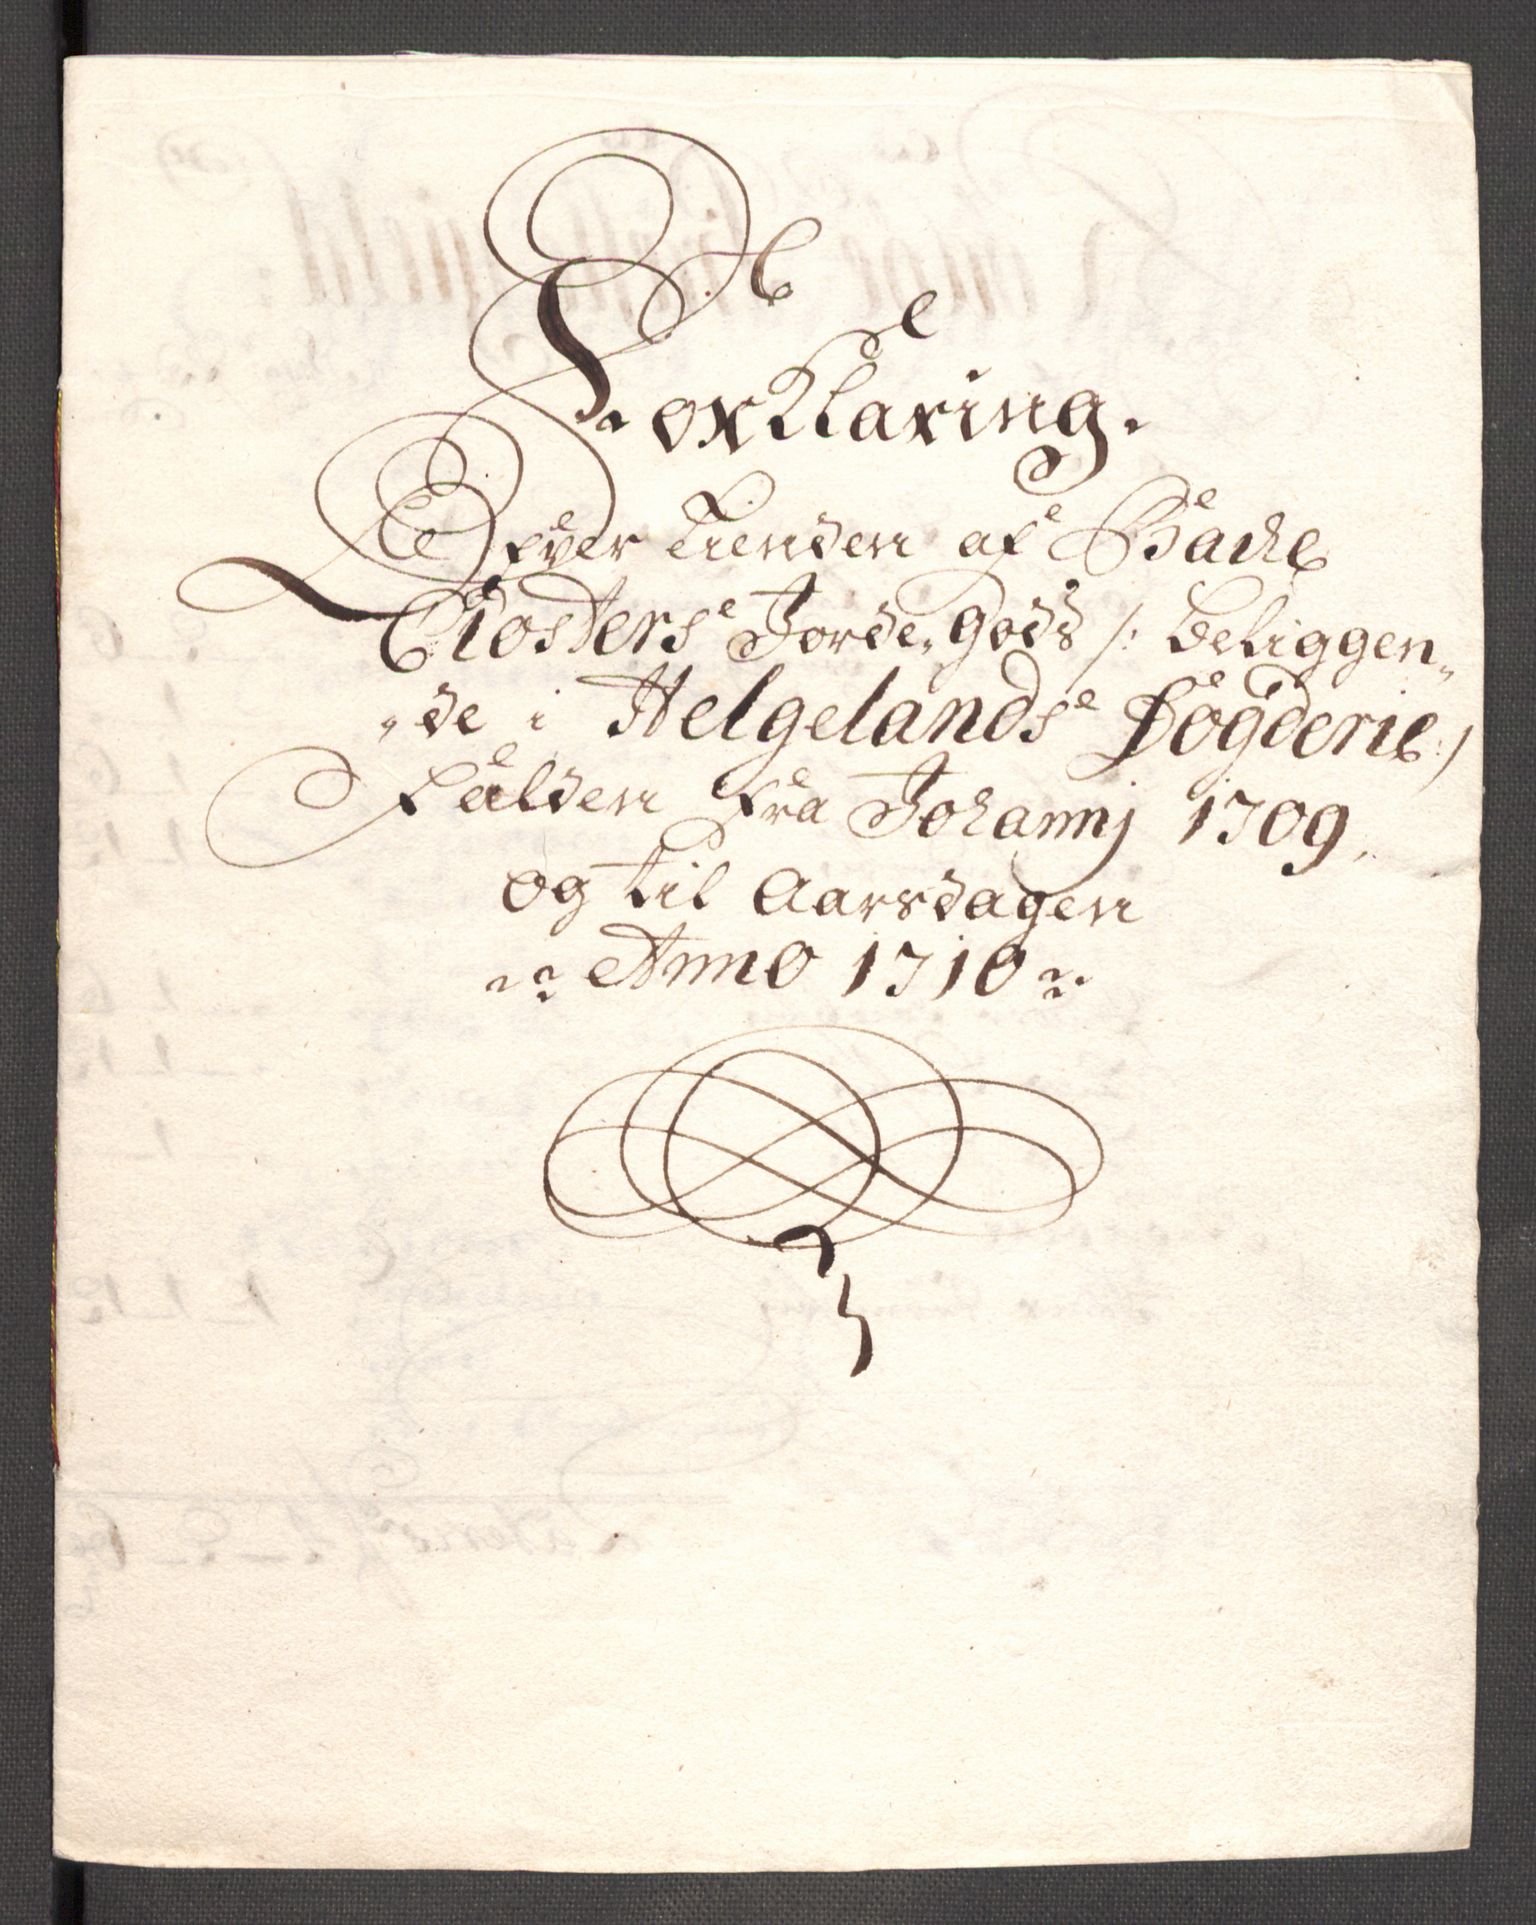 Forklaring.
Ofver Tienden af Backe
Closters Jorde-Gods /: beliggen-
-de i Helgelands Fogderie :/
falden fra Johannj 1709
og til Aarsdagen
Anno 1710